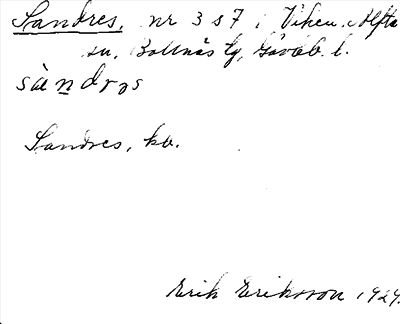 Sandres, nr 3 s 7 i Viken, Alfta
sn, Bollnäs tg, Gävleb. l.
sàndrəs
Sandres, kv.
Erik Eriksson 1929.